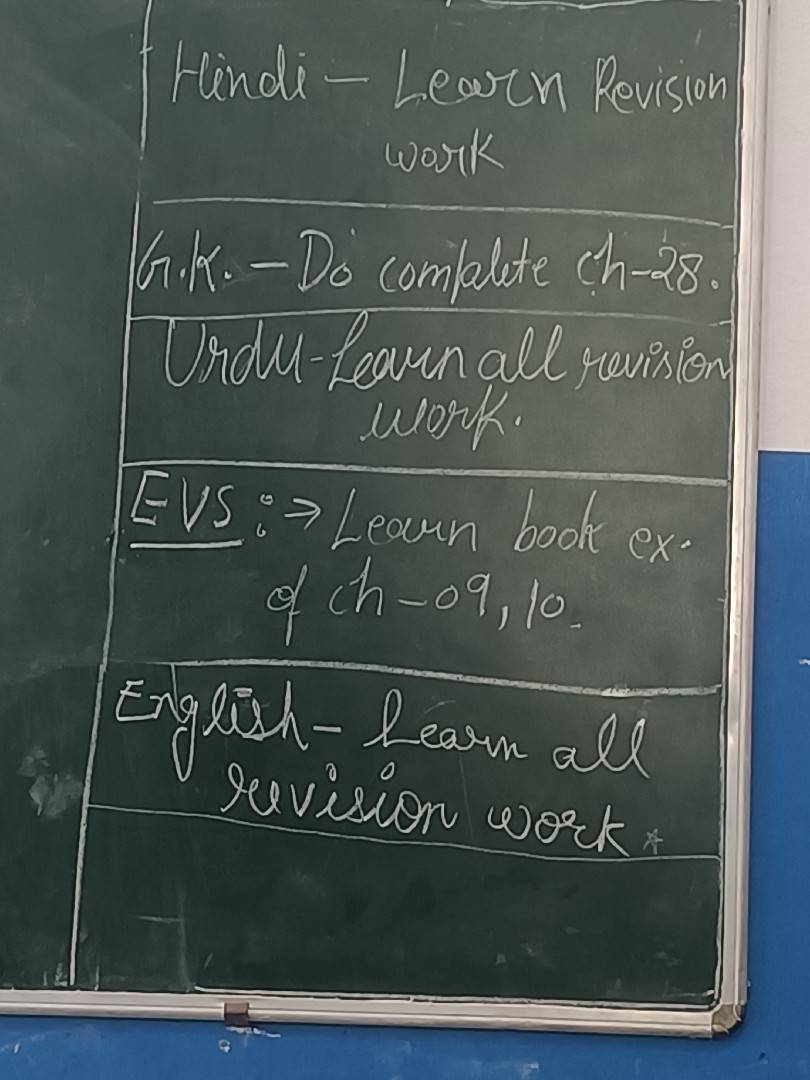 Hindi - Learn Revision
work
G.K. - Do complete ch-28.
Urdu - Learn all revision
work.
EVS :→ Learn book ex.
of ch-09, 10.
English - Learn all
revision work.